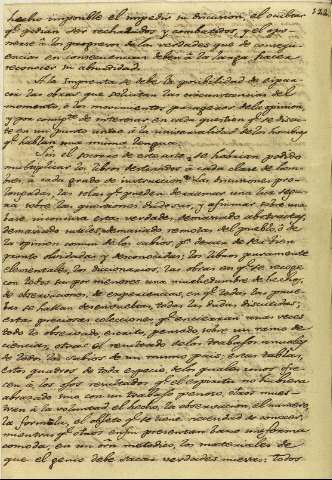 122
hecho imposible el impedir su discusion, el ocultar
qe. pudian ser rechazados y combatidos, y el opo-
nerse á los progresos de las verdades que de consequ-
encias en consecuencias deben á la larga hacer
reconocer su absurdidad.
A la Imprenta se debe la posibilidad de esparcir
las obras que solicitan las circunstancias del
momento, ó los movimientos pasageros de la opinion,
y por consigte. de interesar en cada question qe. se discu-
te en un punto unico á la universalidad de los hombres
qe. hablan una misma lengua.
Sin el socorro de esta arte, se habrian podido
multiplicar los libros destinados á cada clase de hom-
bres, á cada grado de instruccion? Las discusiones pro-
longadas, las solas qe. pueden derramar una luz segu-
ra sobre las questiones dudosas, y afirmar sobre una
base incontra estas verdades, demasiado abstractas,
demasiado sutiles, demasiado remotas del pueblo, ó de
la opinion comun de los sabios, pa. dexar de ser bien
pronto olvidadas y desconocidas; los libros puramente
elementales, los diccionarios, las obras en qe. se recoge
con todos sus por menores una muchedumbre de hechos,
de observaciones, de experiencias, en qe. todas las prue-
bas se hallan desenvueltas, todas las dudas discutidas;
estas preciosas colecciones qe. encierran unas veces
todo lo observado, escrito, pensado, sobre un ramo de
ciencias, otras el resultado de los trabajos anuales
de todos los sabios de un mismo pais; estas tablas,
estos quadros de toda especie, de los quales unos ofre-
cen á los ojos resultados qe. el espiritu no hubiera
abrazado sino con un trabajo penoso, otros mues-
tran á la voluntad el hecho, la observacion, el numero,
la formula, el objeto qe. se tiene necesidad de conocer,
mientras qe. otros en fin presentan bajo una forma
comoda, en un orn. metodico, los materiales de
que el genio debe sacar verdades nuevas: todos